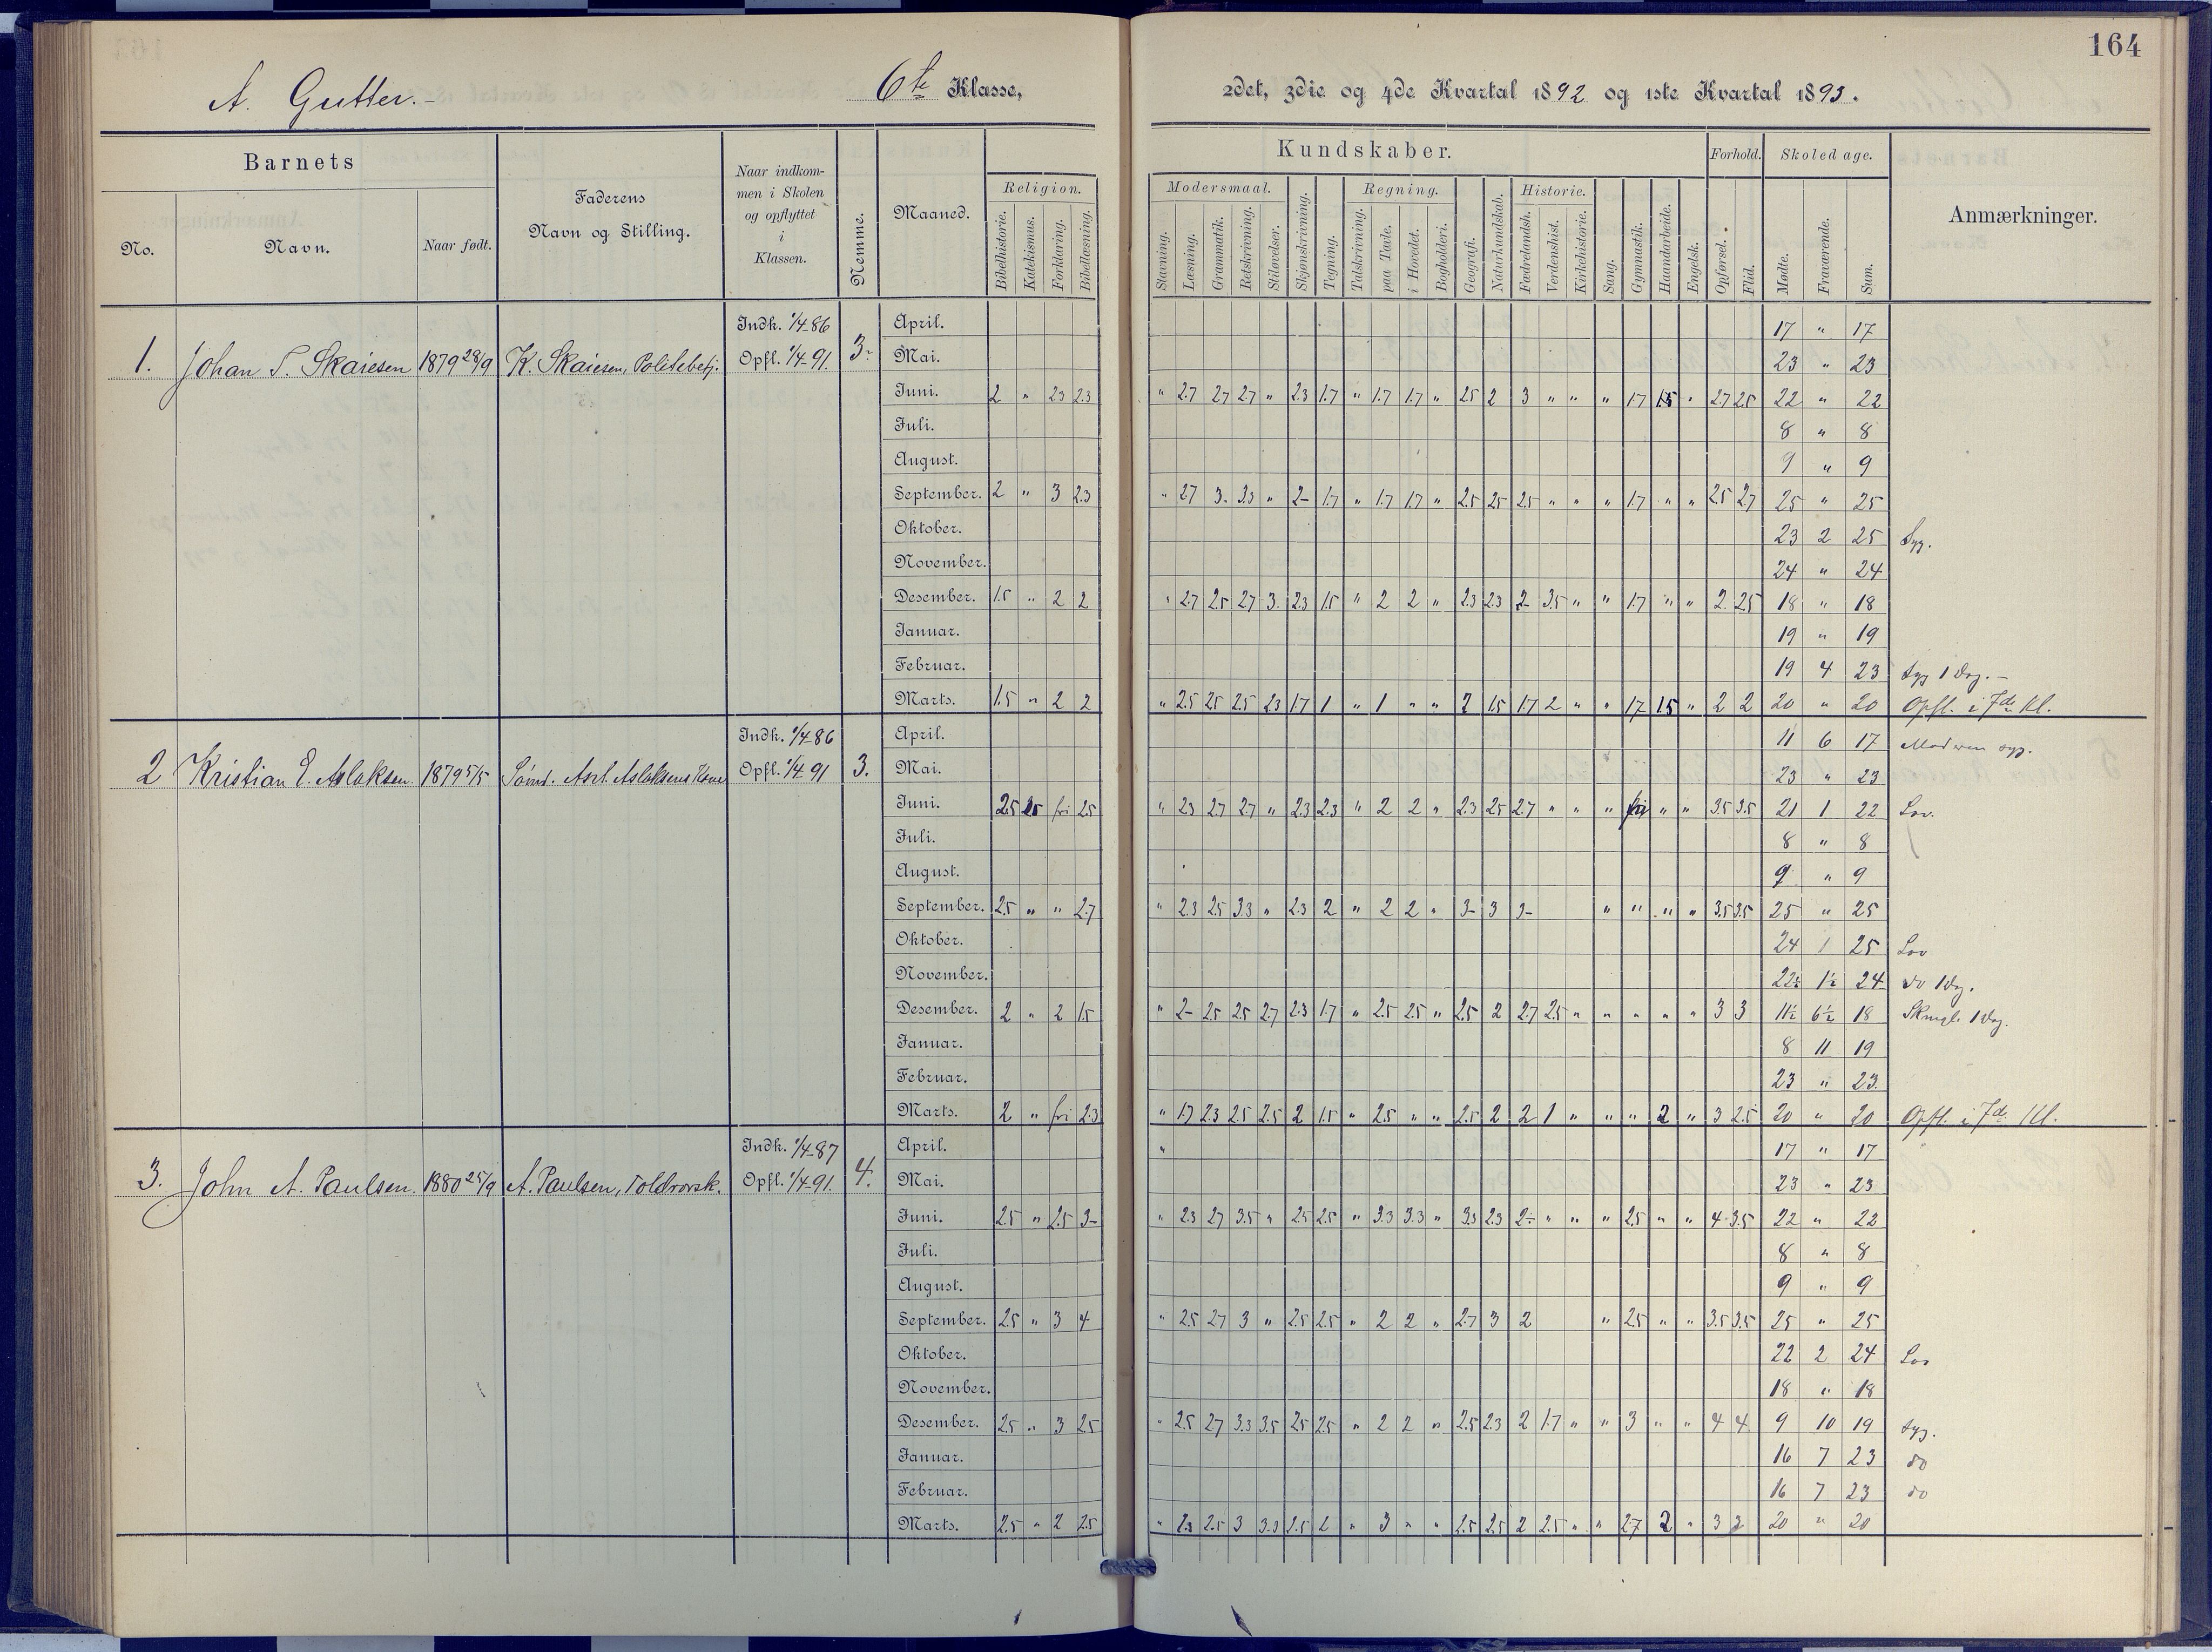 164
A. Gutter.- 6te Klasse, 2det, 3die og 4de Kvartal 1892 og 1ste Kvartal 1893.
Barnets
No. Navn. Naar født.
Faderens Navn og Stilling.
Naar indkommen i Skolen og opflyttet i Klassen.
Nemme.
Maaned.
Kundskaber.
Religion.
Bibelhistorie. Katekismus. Forklaring. Bibellæsning.
Modersmaal.
Stavning. Læsning. Grammatik. Retskrivning. Stiløvelser.
Skjønskrivning. Tegning.
Regning.
Talskrivning. paa Tavle. i Hovedet. Bogholderi.
Geografi. Naturkundskab.
Historie.
Fædrelandsh. Verdenshist. Kirkehistorie.
Sang. Gymnastik. Haandarbeide. Engelsk.
Forhold.
Opførsel. Flid.
Skoledage.
Mødte. Fraværende. Sum.
Anmærkninger.
1. Johan S. Skaiesen 1879 28/9 K. Skaiesen, Politibetj. Indk. 1/4 86 Opfl. 1/4 91. 3.
April. 17 " 17
Mai. 23 " 23
Juni. 2 " 23 2.3 " 2.7 2.7 2.7 " 2.3 1.7 " 1.7 1.7 " 2.5 2 3 " " " 1.7 1.5 " 2.7 2.5 22 " 22
Juli. 8 " 8
August. 9 " 9
September. 2 " 3 2.3 " 2.7 3. 3.3 " 2- 1.7 " 1.7 1.7 " 2.5 2.5 2.5 " " " 1.7 " " 2.5 2.7 25 " 25
Oktober. 23 2 25 Syg.
November. 24 " 24
Desember. 1.5 " 2 2 " 2.7 2.5 2.7 3. 2.3 1.5 " 2 2 " 2.3 2.3 2- 3.5 " " 1.7 " " 2. 2.5 18 " 18
Januar. 19 " 19
Februar. 19 4 23 Syg 1 Dag. -
Marts. 1.5 " 2 2 " 2.5 2.5 2.5 2.3 1.7 1 " 1 " " 2 1.5 1.7 2 " " 1.7 1.5 " 2 2 20 " 20 Opfl. i 7de Kl.
2 Kristian E. Aslaksen. 1879 5/5 Sømd. Aslaksens Indk. 1/4 86 Opfl. 1/4 91 3.
April. 11 6 17 Moderen syg.
Mai. 23 " 23
Juni. 2.5 2.5 fri 2.5 " 2.3 2.7 2.7 " 2.3 2.3 " 2 2 " 2.3 2.5 2.7 " " " fri " " 3.5 3.5 21 1 22 Lov.
Juli. 8 " 8
August. 9 " 9
September. 2.5 " " 2.7 " 2.3 2.5 3.3 " 2.3 2 " 2 2 " 3- 3 3- " " " " 3.5 3.5 25 " 25
Oktober. 24 1 25 Lov
November. 22½ 1½ 24 do 1 Dag.
Desember. 2 " 2 1.5 " 2- 2.5 2.5 2.7 2.3 1.7 " 2.5 2.5 " 2.5 2 2.7 2.5 " " " " " 3 3 11½ 6½ 18 1 Dag.
Januar. 8 11 19
Februar. 23 " 23.
Marts. 2 " fri 2.3 " 1.7 2.3 2.5 2.5 2 1.5 " 2.5 " " 2.5 2 2 1 " " " 2 " 3 2.5 20 " 20 Opfl. i 7de Kl.
3. John A. Paulsen. 1880 25/9 A. Paulsen, Toldrorsk. Indk. 1/4 87 Opfl. 1/4 91. 4.
April. " 17 " 17
Mai. 23 " 23
Juni. 2.5 " 2.5 3- " 2.3 2.7 3.5 " 2.5 2.5 " 3.3 3.3 " 3.3 2.3 2- " " " 2.5 " " 4 3.5 22 " 22
Juli. 8 " 8
August. 9 " 9
September. 2.5 " 3 4 " 2.5 2.7 3 " 2.5 2.5 " 2 2 " 2.7 3 2 " 2.5 " " 3.5 3.5 25 " 25
Oktober. 22 2 24 Lov
November. 18 " 18
Desember. 2.5 " 3 2.5 " 2.5 2.7 3.3 3.5 2.5 2.5 " 2 2 " 2.5 2.3 2 1.7 " " 3 " " 4 4 9 10 19 Syg.
Januar. 16 7 23 do
Februar. 16 7 23 do
Marts. 2.5 " 2 2.5 " 2.3 2.5 3 3.3 2.5 2 " 3 " " 2.5 2.5 2 2.5 " " 2.7 2 " 3 3 20 " 20